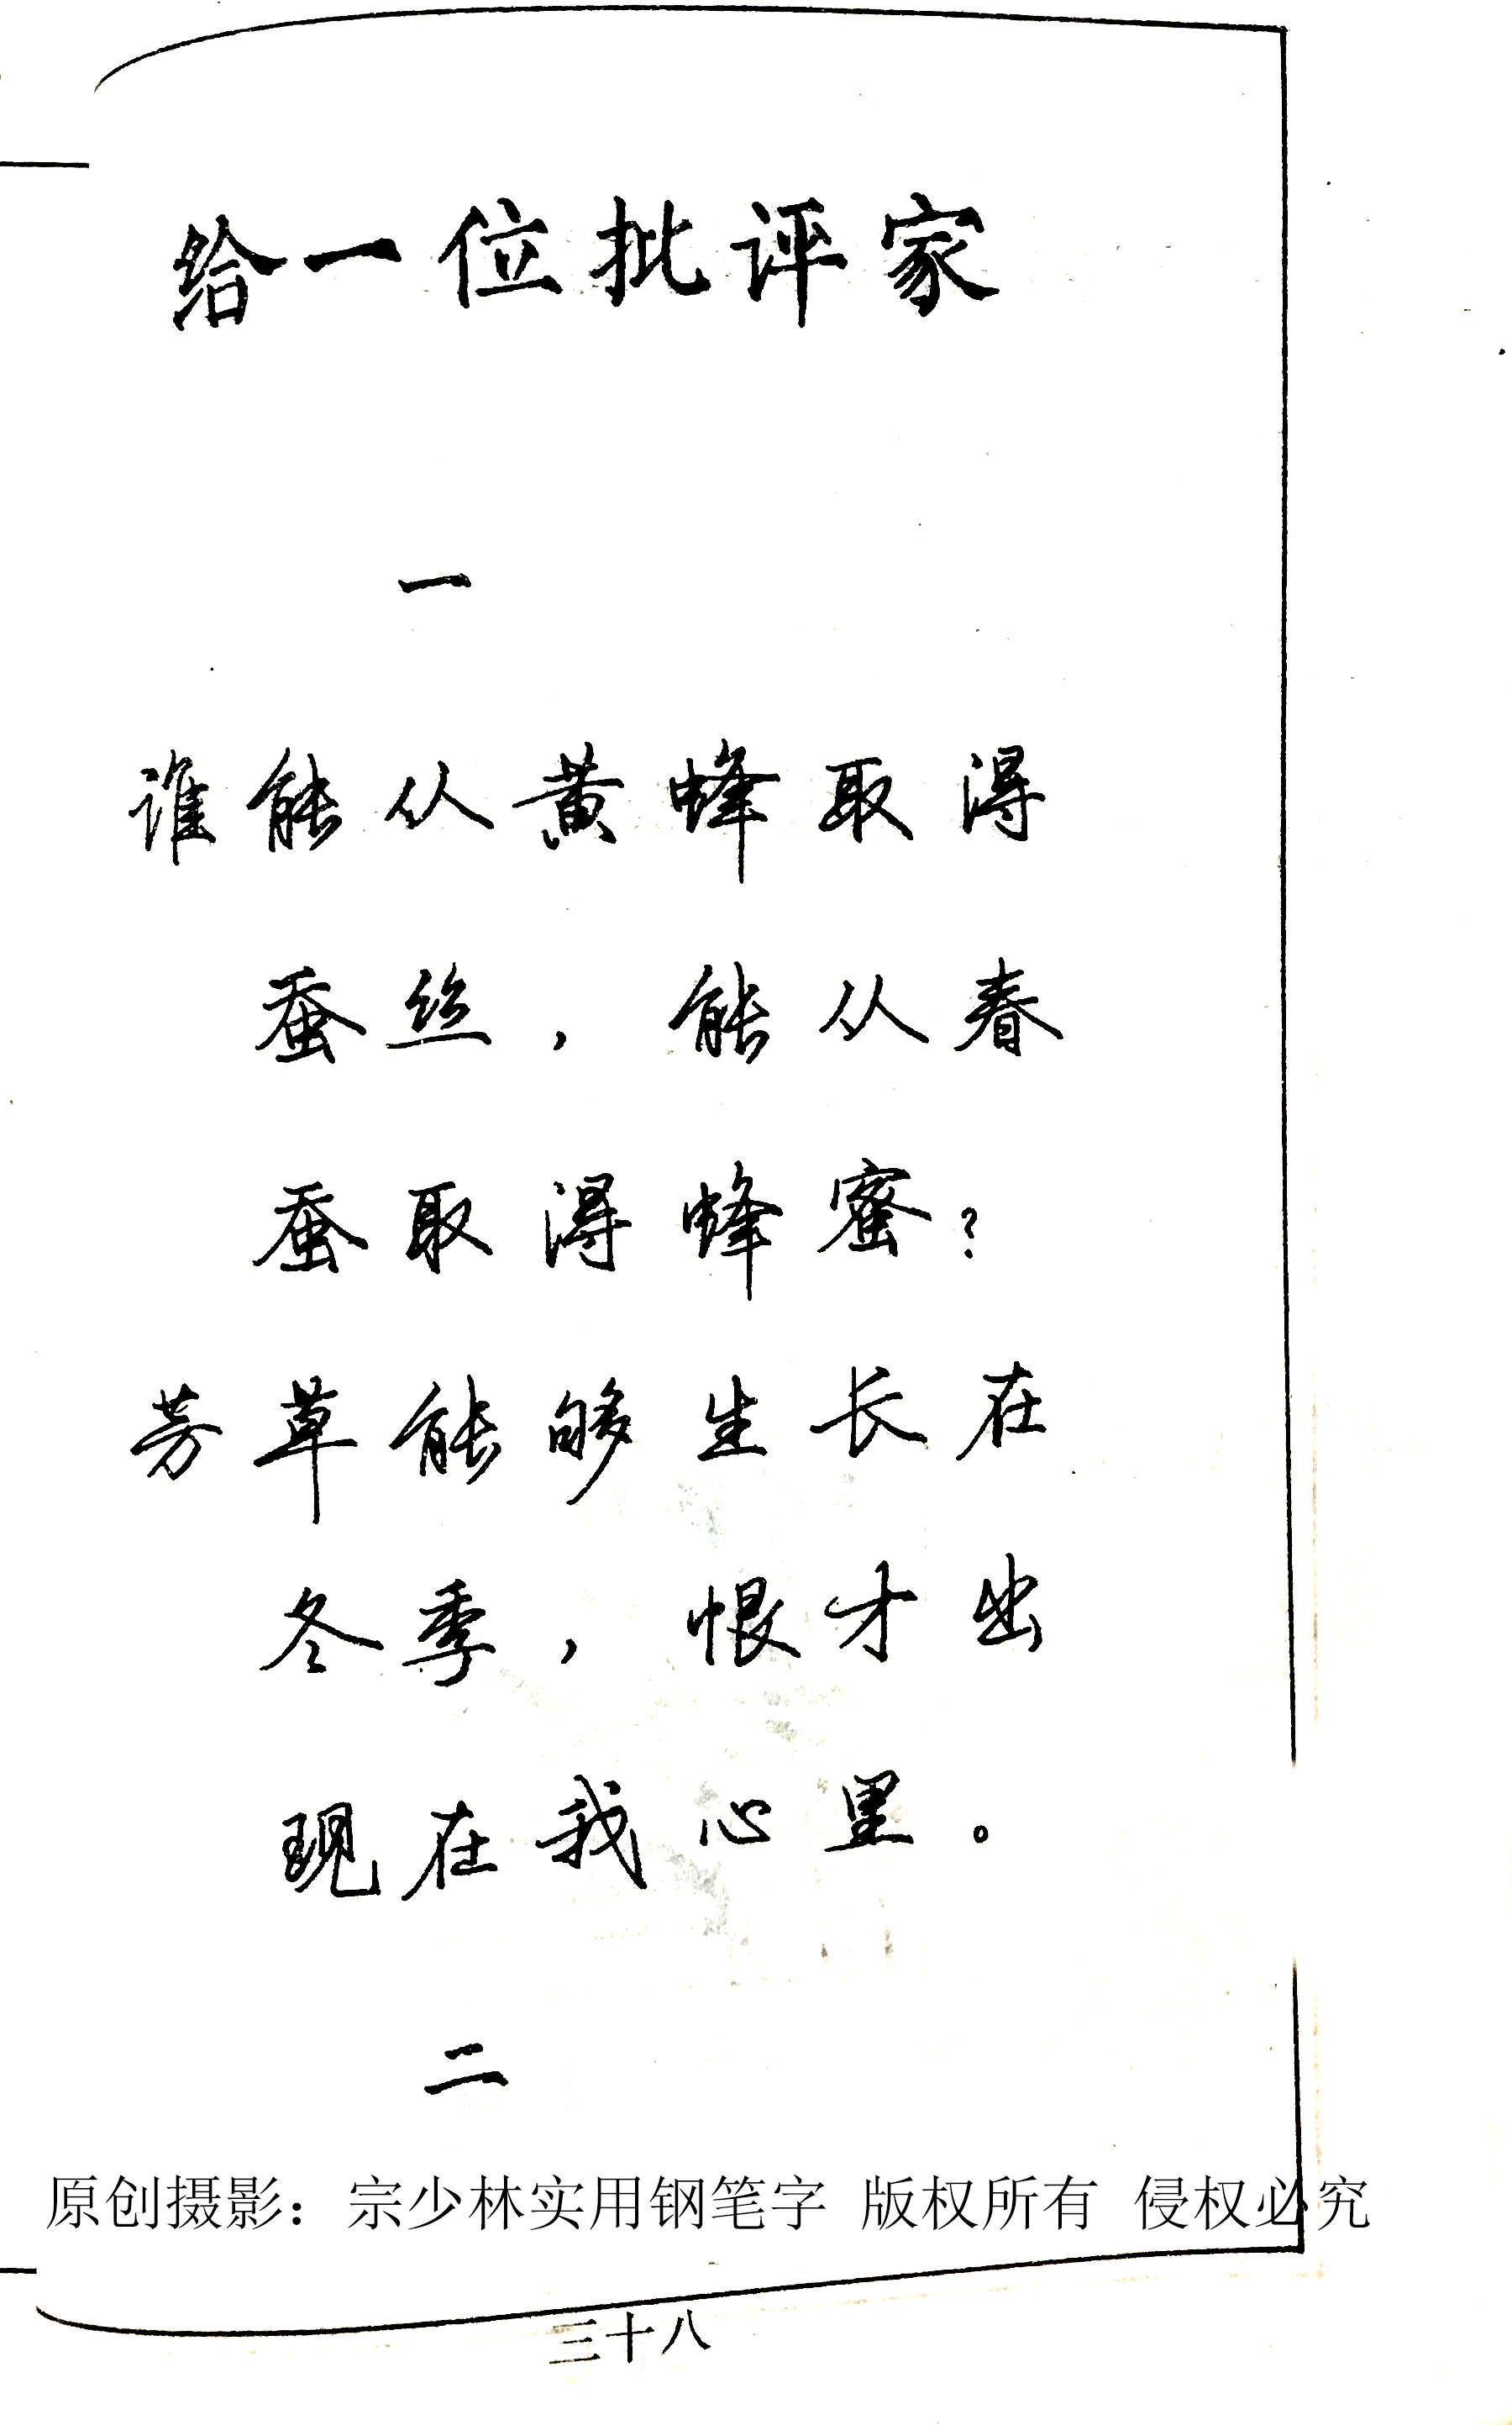 给一位批评家
一
谁能从黄蜂取得
蚕丝，能从春
蚕取得蜂蜜？
芳草能够生长在
冬季，恨才出
现在我心里。
二
原创摄影：宗少林实用钢笔字 版权所有 侵权必究
三十八